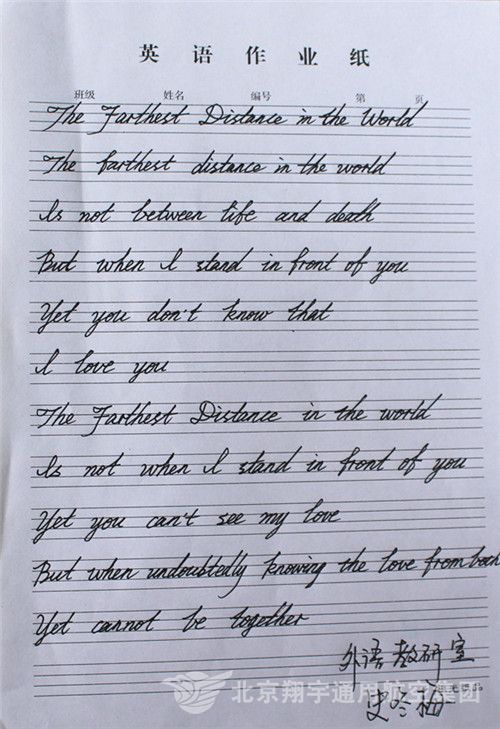 英语作业纸
班级 姓名 编号 第 页
The Farthest Distance in the World
The farthest distance in the world
Is not between life and death
But when I stand in front of you
Yet you don't know that
I love you
The Farthest Distance in the world
Is not when I stand in front of you
Yet you can't see my love
But when undoubtedly knowing the love from both
Yet cannot be together
外语教研室
北京翔宇通用航空集团
史冬梅